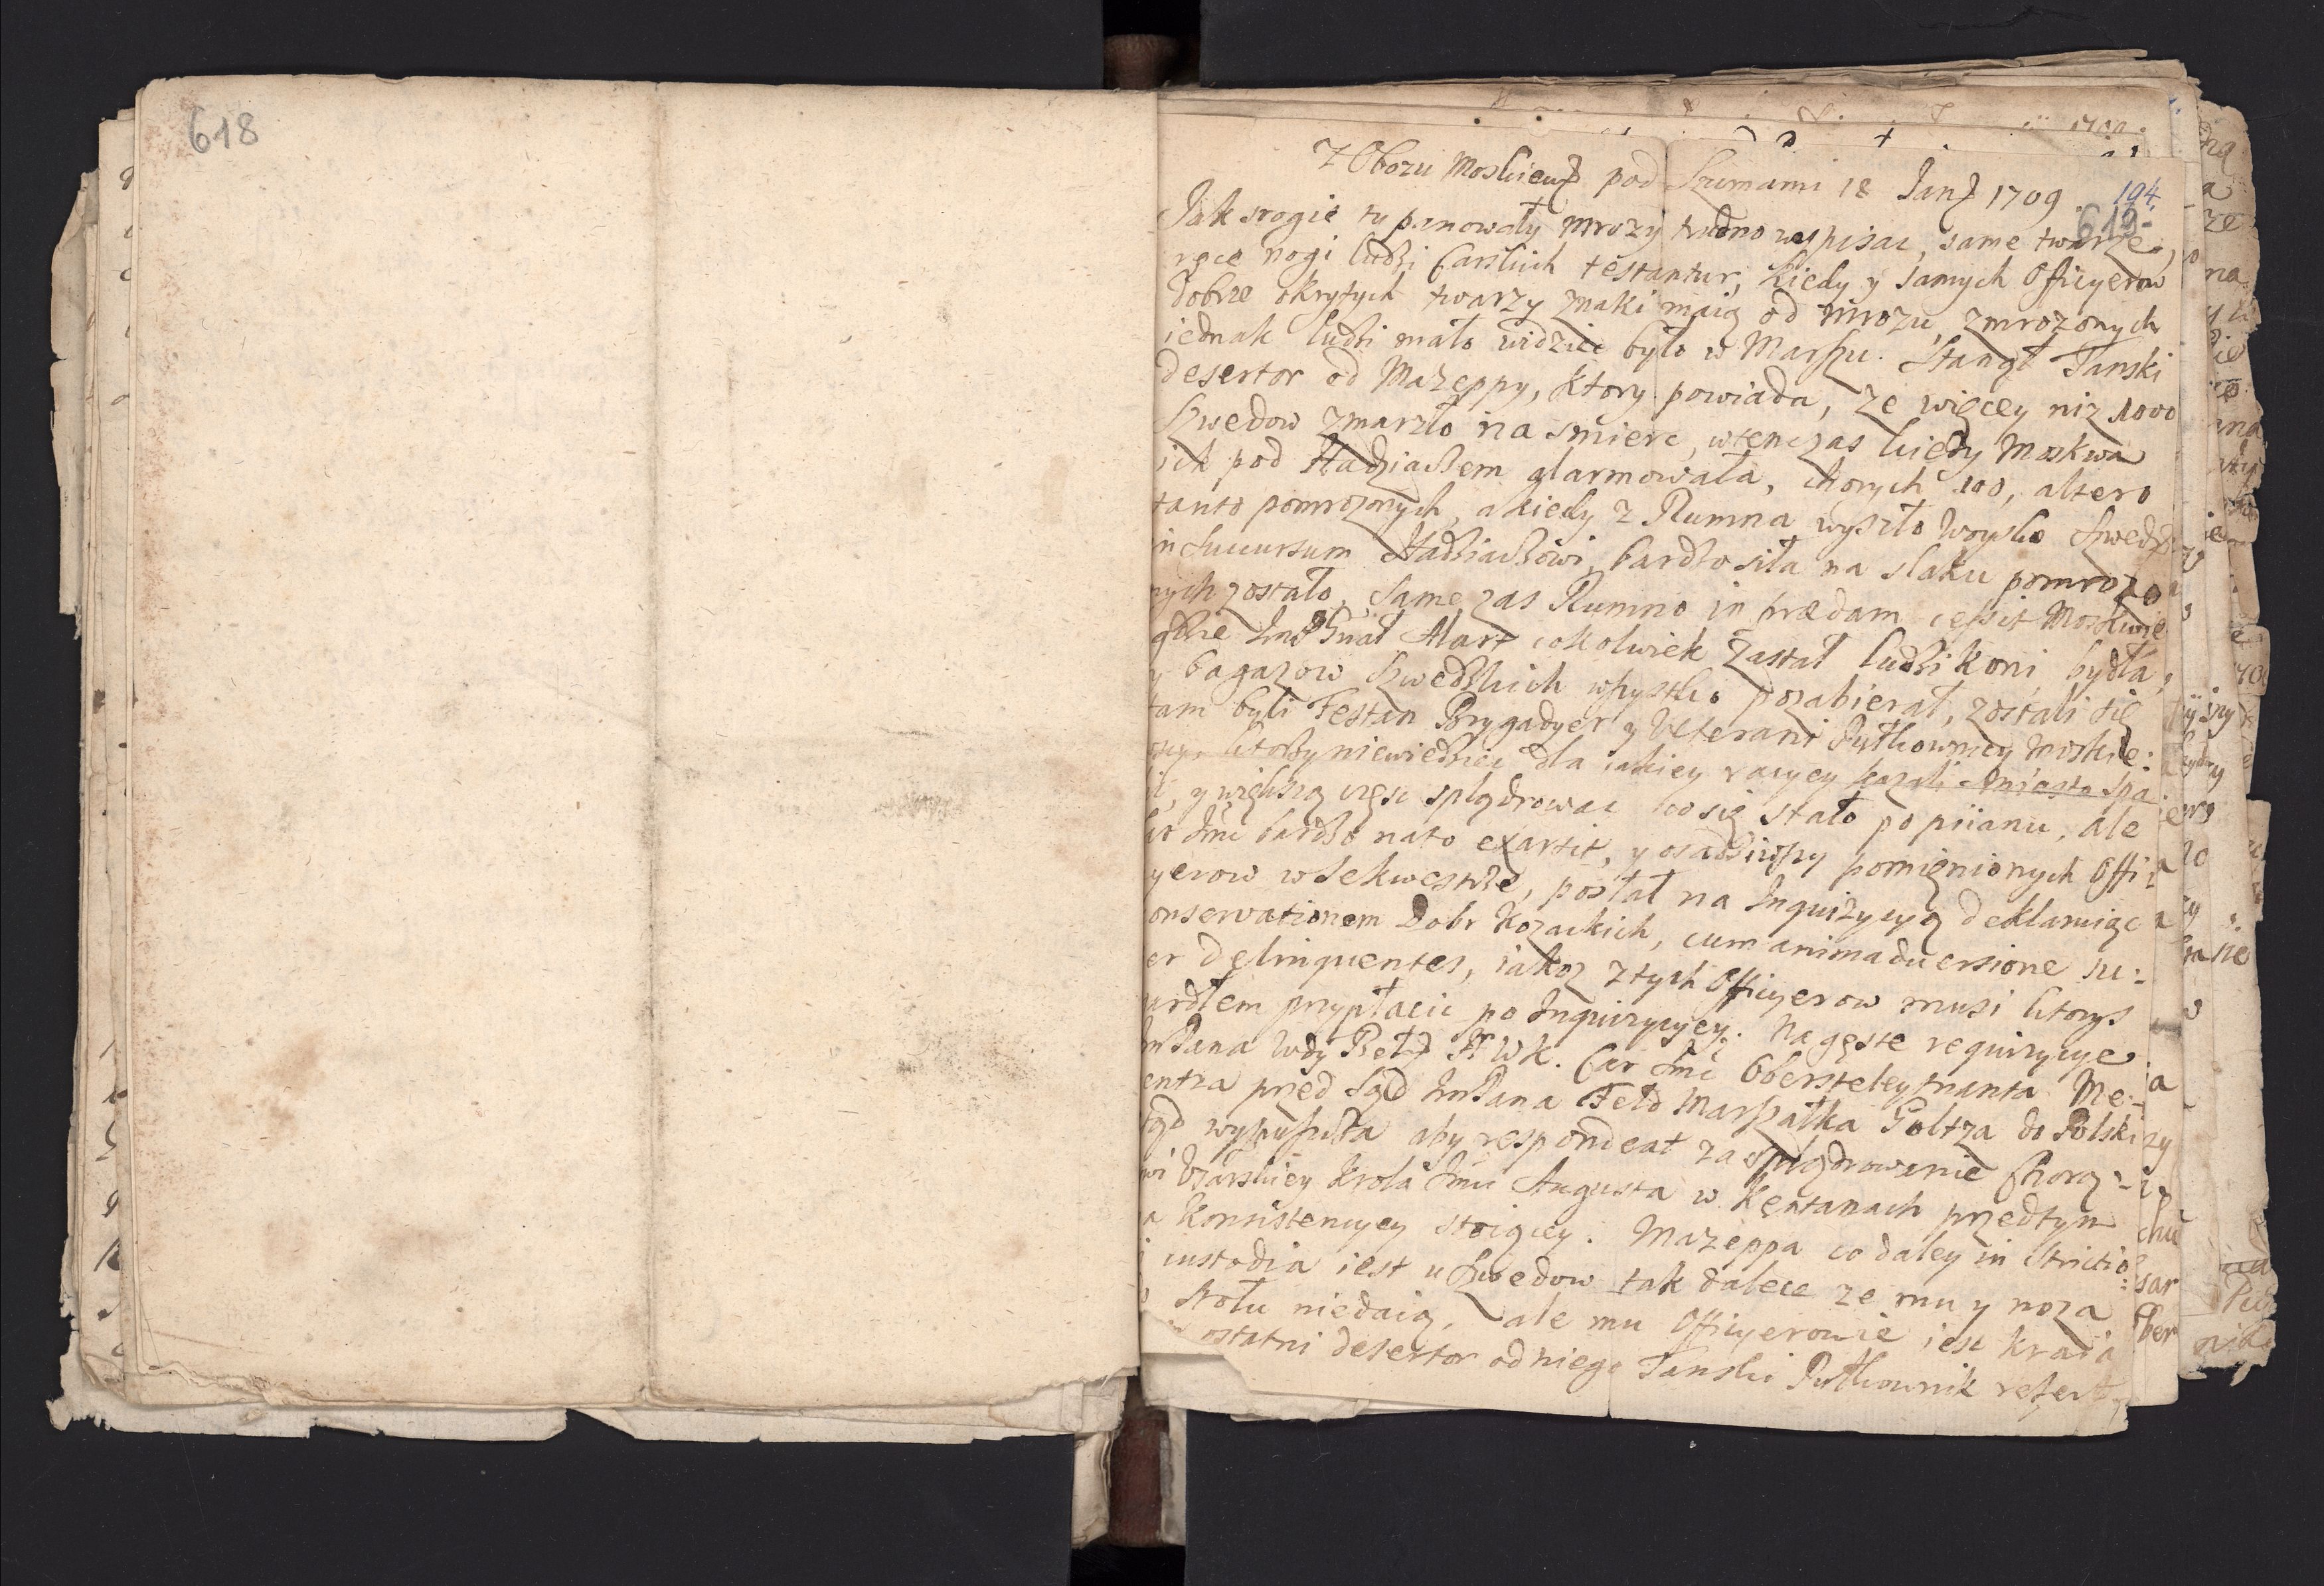 618
Z Obozu Moskiew pod Szumami 18 Jan 1709. 194.
619
Jak srogie tu panowały mrozy trudno wypisac, same twarze,
ręce nogi ludzi Carskich testantur, kiedy y samych Officyerow
dobrze okrytych twarzy znaki maią od mrozu, zmrozonych
iednak ludzi mało widziec było w Marszu. Stanął Tanski
desertor od Mazeppy, ktory powiada, ze więcey niz 1000
Szwedow zmarzło na smierc, wtenczas kiedy Moskwa
ich pod Hadziaczem alarmowała, chorych 100, altero
tanto pomrozonych, a kiedy z Rumna wyszło Woysko Szwedz
in succursum Hadziaczowi, bardzo siła na slaku pomrozo
nych zostało, same zas Rumno in prædam cessit Moskwie
gdzie Gnał Alart cokolwiek zastał ludzi koni, bydła,
y bagazow Szwedzkich wszystko pozabierał, zostali się
tam byli Festan Brygadyer y Weterani Pułkownicy Moskie:
ktorzy niewiedziec dla iakiey racyey kazali miasto spa
y większą częsc splądrowac co się stało po piianu, ale
Jmc bardzo na to exarsit, y osadziwszy pomienionych Offi
yerow w Sekwestrze, posłał na Inquizycyą deklaruiąc
onservationem Dobr Kozackich, cum animaduersione su:
er Delinquentes, iakoz z tych Officyerow musi ktorys
ardłem przypłacic po Inquizycyey. Na gęste requizycye
mPana Wdy Bełz H W K. Car Jmc Obersteleytnanta Me:
entza przed Sąd ImPana Feld Marszałka Goltza do Polski
tąd wypuszcza aby respondeat za splądrowanie Chorą:
wi Usarskiey Krola Jmci Augusta w Kęntanach przedtym
a Konsistencyey stoiącey. Mazeppa co daley in strictio
i custodia iest u Szwedow tak dalece ze mu y noza
stołu niedaią, ale mu Officyerowie iesc kraia
ostatni desertor od niego Tanski Pułkownik refert